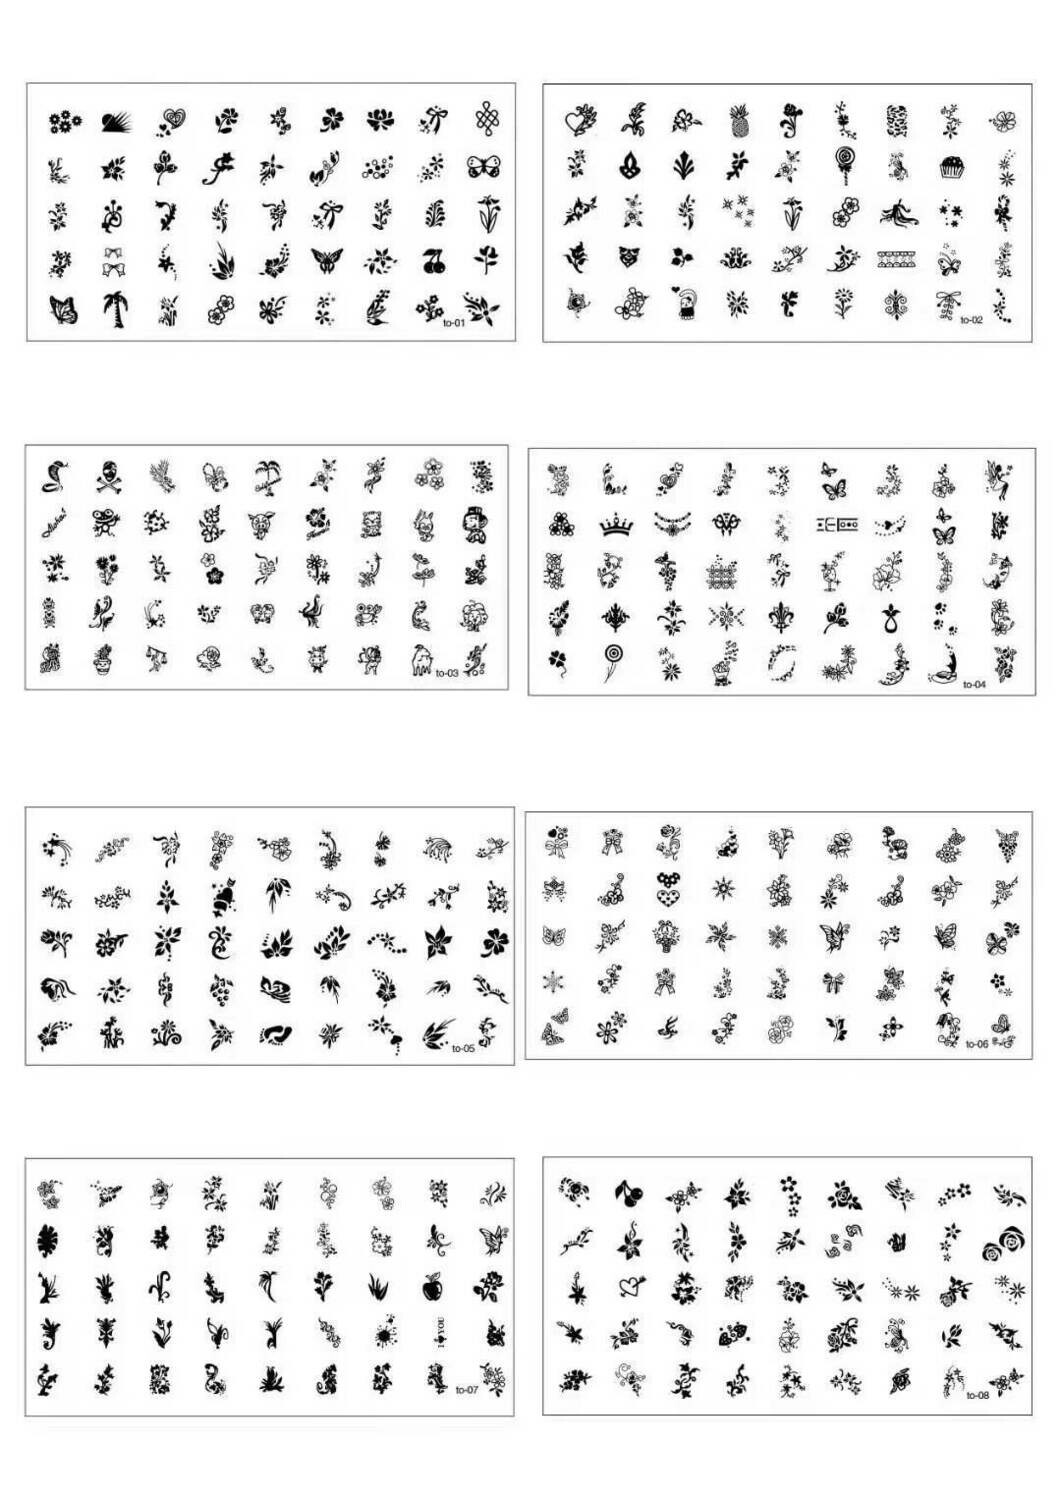 to-01
to-02
aloha!
to-03
to-04
to-05
to-06
I ♥ YOU
to-07
to-08